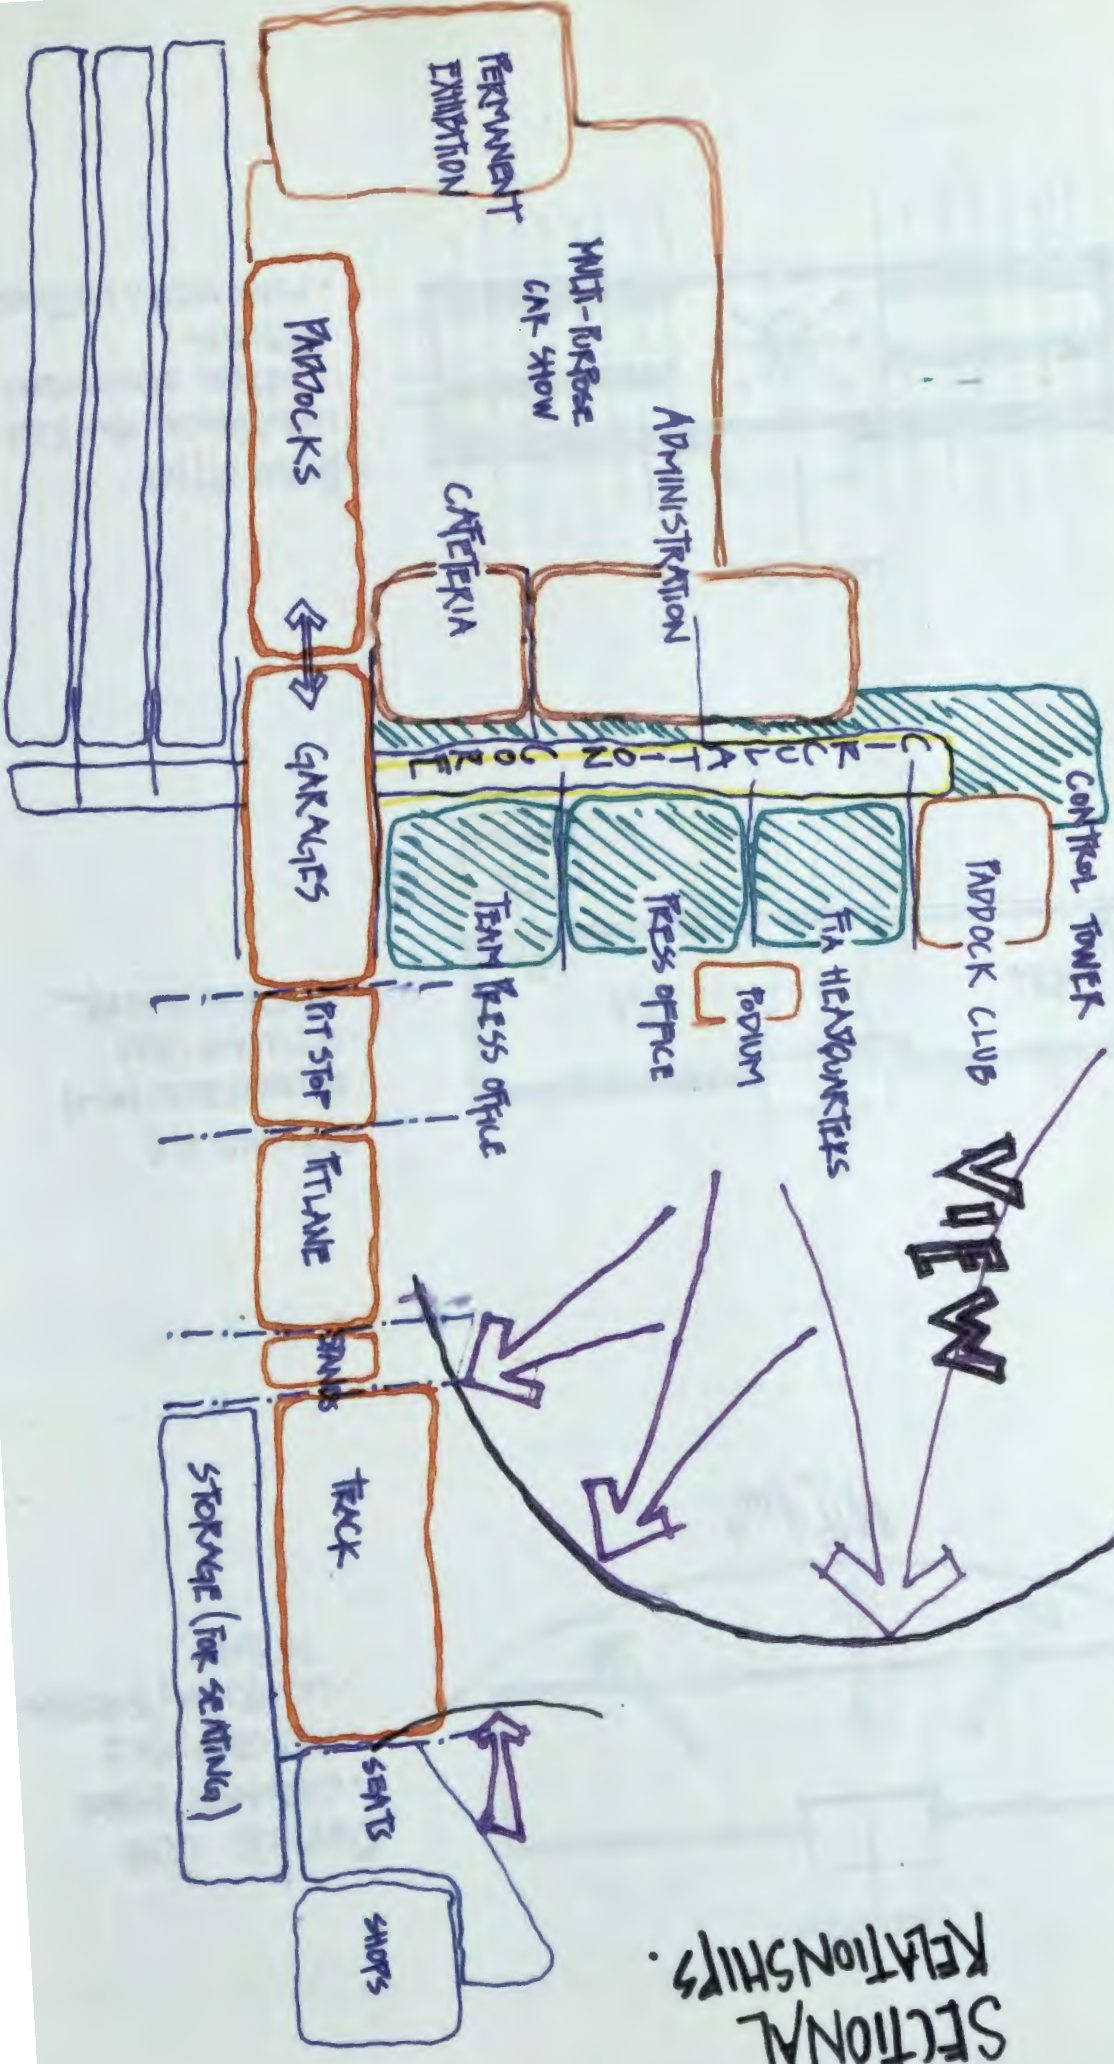 SECTIONAL
RELATIONSHIPS.
CONTROL TOWER
PADDOCK CLUB
VIEW
FIA HEADQUARTERS
PODIUM
PRESS OFFICE
TEAM PRESS OFFICE
CIRCULATION CORE
ADMINISTRATION
CAFETERIA
MULTI-PURPOSE
CAR SHOW
PERMANENT
EXHIBITION
PADDOCKS
GARAGES
PIT STOP
PIT LANE
STANDS
TRACK
SEATS
SHOPS
STORAGE (FOR SEATING)